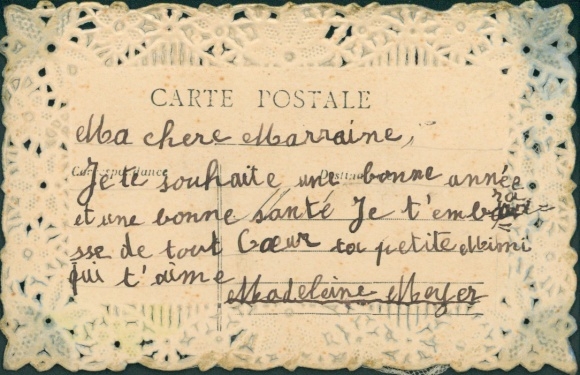 CARTE POSTALE
Ma chere Marraine,
Correspondance Destina
Je te souhaite une bonne année
et une bonne santé Je t'embra=
sse de tout Cœur ta petite Mimi
qui t'aime
Madeleine Meyer